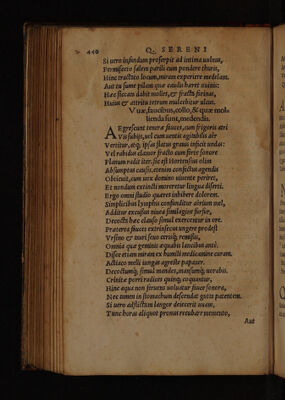 440 Q. SERENI
Si uero infandum proserpit ad intima uulnus,
Fermifecto salem parili cum pondere thuris,
Hinc tractato locum, miram experiere medelam.
Aut tu sume pilam quæ caudis hæret
Hæc siccata dabit molles, & fracta
Huius & attritu tetrum mulcebitur ulcus.
Vuæ, faucibus, collo, & quæ mollienda
sunt, medendis.
AEgrescunt teneræ fauces, cum frigoris atri
Vis subijt, uel cum uentis agitabilis aër
Vertitur, atq; ipsas flatus grauis inficit undas:
Vel rabidus clamor fracto cum forte sonore
Planum radit iter. sic est Hortensius olim
Absumptus causis, etenim confectus agendi
Obticuit, cum uox domino uiuente periret,
Et nondum extincti moreretur lingua diserti.
Ergo omni studio quæres inhibere dolorem.
Simplicibus lymphis confunditur oleum mel,
Additur excussus niuea similagine furfur,
Decocta hæc clauso simul exercentur in ore.
Præterea fauces extrinsecus ungere prodest
Vrsino & tauri seuo ceraq; remissa,
Omnia quæ geminis æquabis lancibus ante.
Disce etiam miram ex humili medicamine curam.
Actæo melli iungas agreste papauer.
Decoctumq; simul mandes,
Crinitæ porri radices quinq; coquantur,
Hinc aqua non feruens uoluatur fauce sonora,
Nec tamen in stomachum descendat gutta patentem.
Si uero adflictum langor deiecerit uuam,
Tunc horas aliquot pronus recubare memento,
Aut